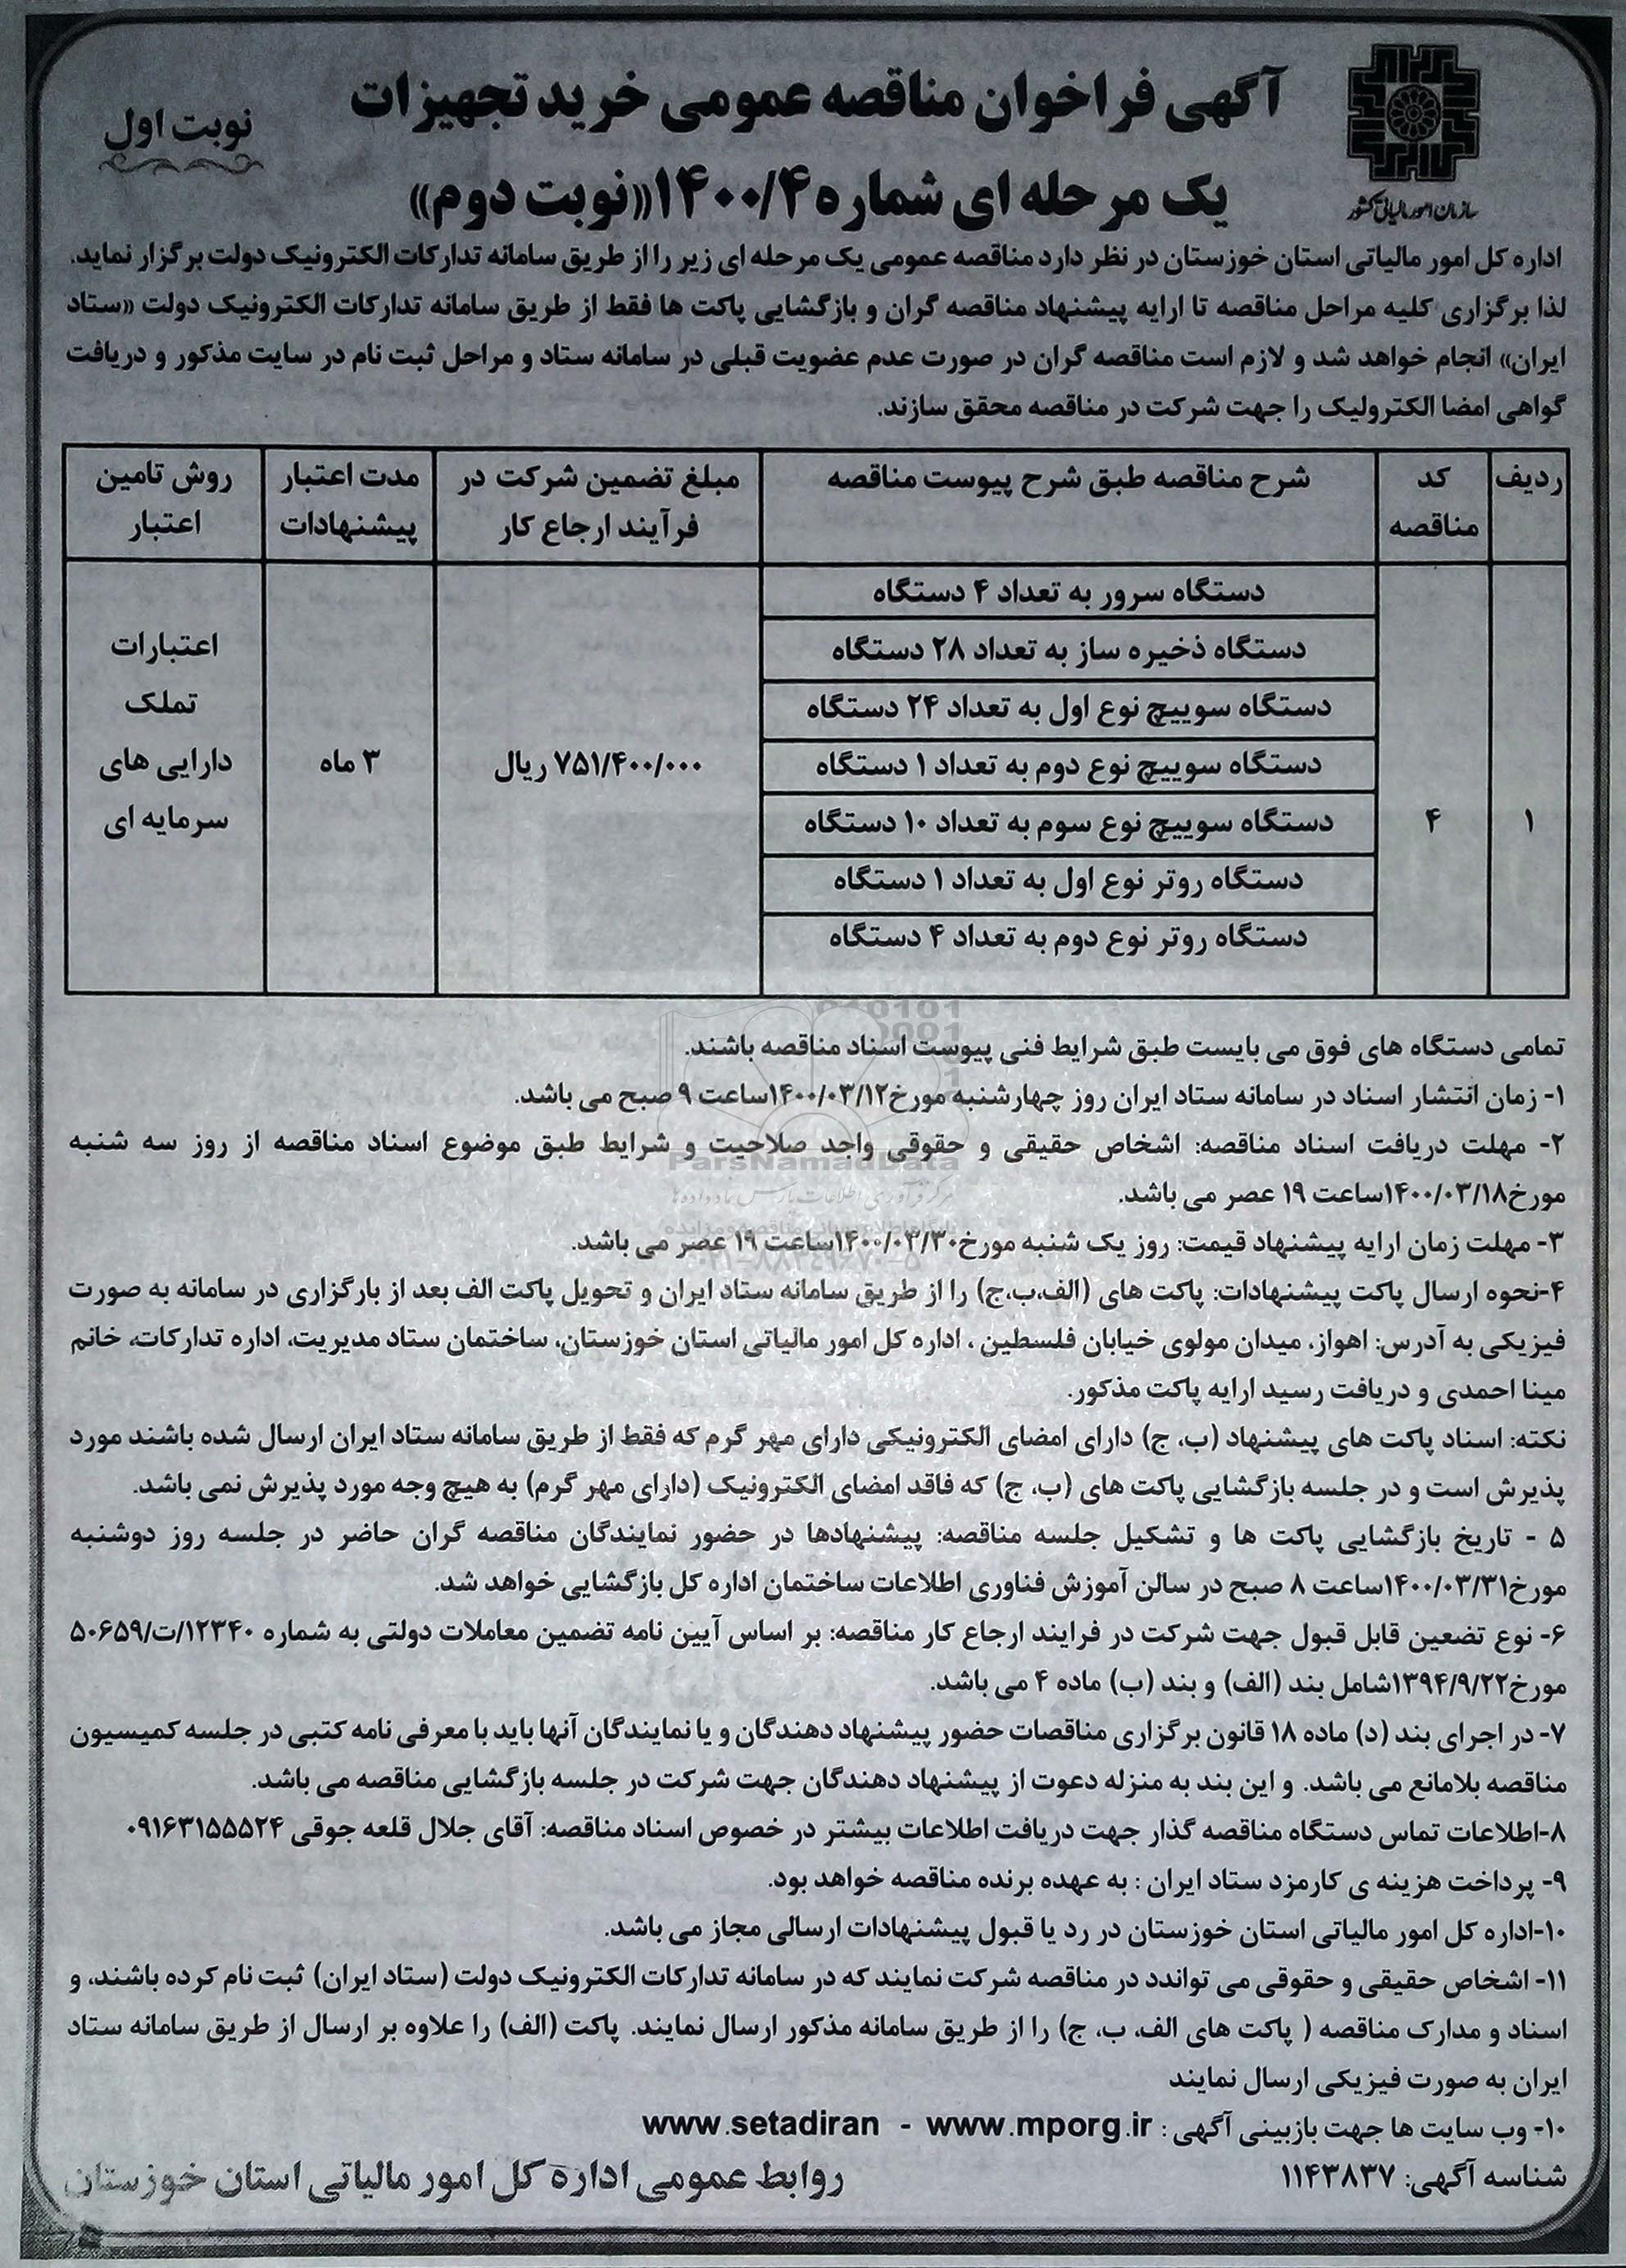 آگهی فراخوان مناقصه عمومی خرید تجهیزات
نوبت اول
یک مرحله ای شماره ۱۴۰۰/۴«نوبت دوم»
سازمان امور مالیاتی کشور
اداره کل امور مالیاتی استان خوزستان در نظر دارد مناقصه عمومی یک مرحله ای زیر را از طریق سامانه تدارکات الکترونیک دولت برگزار نماید.
لذا برگزاری کلیه مراحل مناقصه تا ارایه پیشنهاد مناقصه گران و بازگشایی پاکت ها فقط از طریق سامانه تدارکات الکترونیک دولت «ستاد
ایران» انجام خواهد شد و لازم است مناقصه گران در صورت عدم عضویت قبلی در سامانه ستاد و مراحل ثبت نام در سایت مذکور و دریافت
گواهی امضا الکترولیک را جهت شرکت در مناقصه محقق سازند.
ردیف
کد مناقصه
شرح مناقصه طبق شرح پیوست مناقصه
مبلغ تضمین شرکت در فرآیند ارجاع کار
مدت اعتبار پیشنهادات
روش تامین اعتبار
۱
۴
دستگاه سرور به تعداد ۴ دستگاه
دستگاه ذخیره ساز به تعداد ۲۸ دستگاه
دستگاه سوییچ نوع اول به تعداد ۲۴ دستگاه
دستگاه سوییچ نوع دوم به تعداد ۱ دستگاه
دستگاه سوییچ نوع سوم به تعداد ۱۰ دستگاه
دستگاه روتر نوع اول به تعداد ۱ دستگاه
دستگاه روتر نوع دوم به تعداد ۴ دستگاه
۷۵۱/۴۰۰/۰۰۰ ریال
۳ ماه
اعتبارات
تملک
دارایی های
سرمایه ای
تمامی دستگاه های فوق می بایست طبق شرایط فنی پیوست اسناد مناقصه باشند.
۱- زمان انتشار اسناد در سامانه ستاد ایران روز چهارشنبه مورخ۱۴۰۰/۰۳/۱۲ساعت ۹ صبح می باشد.
۲- مهلت دریافت اسناد مناقصه: اشخاص حقیقی و حقوقی واجد صلاحیت و شرایط طبق موضوع اسناد مناقصه از روز سه شنبه
مورخ۱۴۰۰/۰۳/۱۸ساعت ۱۹ عصر می باشد.
ParsNamadData
مرکز فرآوری اطلاعات پارس نماد داده ها
پایگاه اطلاع رسانی مناقصه و مزایده
۰۲۱-۸۸۳۴۹۶۷۰-۵
۳- مهلت زمان ارایه پیشنهاد قیمت: روز یک شنبه مورخ۱۴۰۰/۰۳/۳۰ساعت ۱۹ عصر می باشد.
۴-نحوه ارسال پاکت پیشنهادات: پاکت های (الف،ب،ج) را از طریق سامانه ستاد ایران و تحویل پاکت الف بعد از بارگزاری در سامانه به صورت
فیزیکی به آدرس: اهواز، میدان مولوی خیابان فلسطین ، اداره کل امور مالیاتی استان خوزستان، ساختمان ستاد مدیریت، اداره تدارکات، خانم
مینا احمدی و دریافت رسید ارایه پاکت مذکور.
نکته: اسناد پاکت های پیشنهاد (ب، ج) دارای امضای الکترونیکی دارای مهر گرم که فقط از طریق سامانه ستاد ایران ارسال شده باشند مورد
پذیرش است و در جلسه بازگشایی پاکت های (ب، ج) که فاقد امضای الکترونیک (دارای مهر گرم) به هیچ وجه مورد پذیرش نمی باشد.
۵ - تاریخ بازگشایی پاکت ها و تشکیل جلسه مناقصه: پیشنهادها در حضور نمایندگان مناقصه گران حاضر در جلسه روز دوشنبه
مورخ۱۴۰۰/۰۳/۳۱ساعت ۸ صبح در سالن آموزش فناوری اطلاعات ساختمان اداره کل بازگشایی خواهد شد.
۶- نوع تضعین قابل قبول جهت شرکت در فرایند ارجاع کار مناقصه: بر اساس آیین نامه تضمین معاملات دولتی به شماره ۱۲۳۴۰/ت/۵۰۶۵۹
مورخ۱۳۹۴/۹/۲۲شامل بند (الف) و بند (ب) ماده ۴ می باشد.
۷- در اجرای بند (د) ماده ۱۸ قانون برگزاری مناقصات حضور پیشنهاد دهندگان و یا نمایندگان آنها باید با معرفی نامه کتبی در جلسه کمیسیون
مناقصه بلامانع می باشد. و این بند به منزله دعوت از پیشنهاد دهندگان جهت شرکت در جلسه بازگشایی مناقصه می باشد.
۸-اطلاعات تماس دستگاه مناقصه گذار جهت دریافت اطلاعات بیشتر در خصوص اسناد مناقصه: آقای جلال قلعه جوقی ۰۹۱۶۳۱۵۵۵۲۴
۹- پرداخت هزینه ی کارمزد ستاد ایران : به عهده برنده مناقصه خواهد بود.
۱۰-اداره کل امور مالیاتی استان خوزستان در رد یا قبول پیشنهادات ارسالی مجاز می باشد.
۱۱- اشخاص حقیقی و حقوقی می تواندد در مناقصه شرکت نمایند که در سامانه تدارکات الکترونیک دولت (ستاد ایران) ثبت نام کرده باشند، و
اسناد و مدارک مناقصه ( پاکت های الف، ب، ج) را از طریق سامانه مذکور ارسال نمایند. پاکت (الف) را علاوه بر ارسال از طریق سامانه ستاد
ایران به صورت فیزیکی ارسال نمایند
۱۰- وب سایت ها جهت بازبینی آگهی : www.setadiran - www.mporg.ir
شناسه آگهی: ۱۱۴۳۸۳۷
روابط عمومی اداره کل امور مالیاتی استان خوزستان